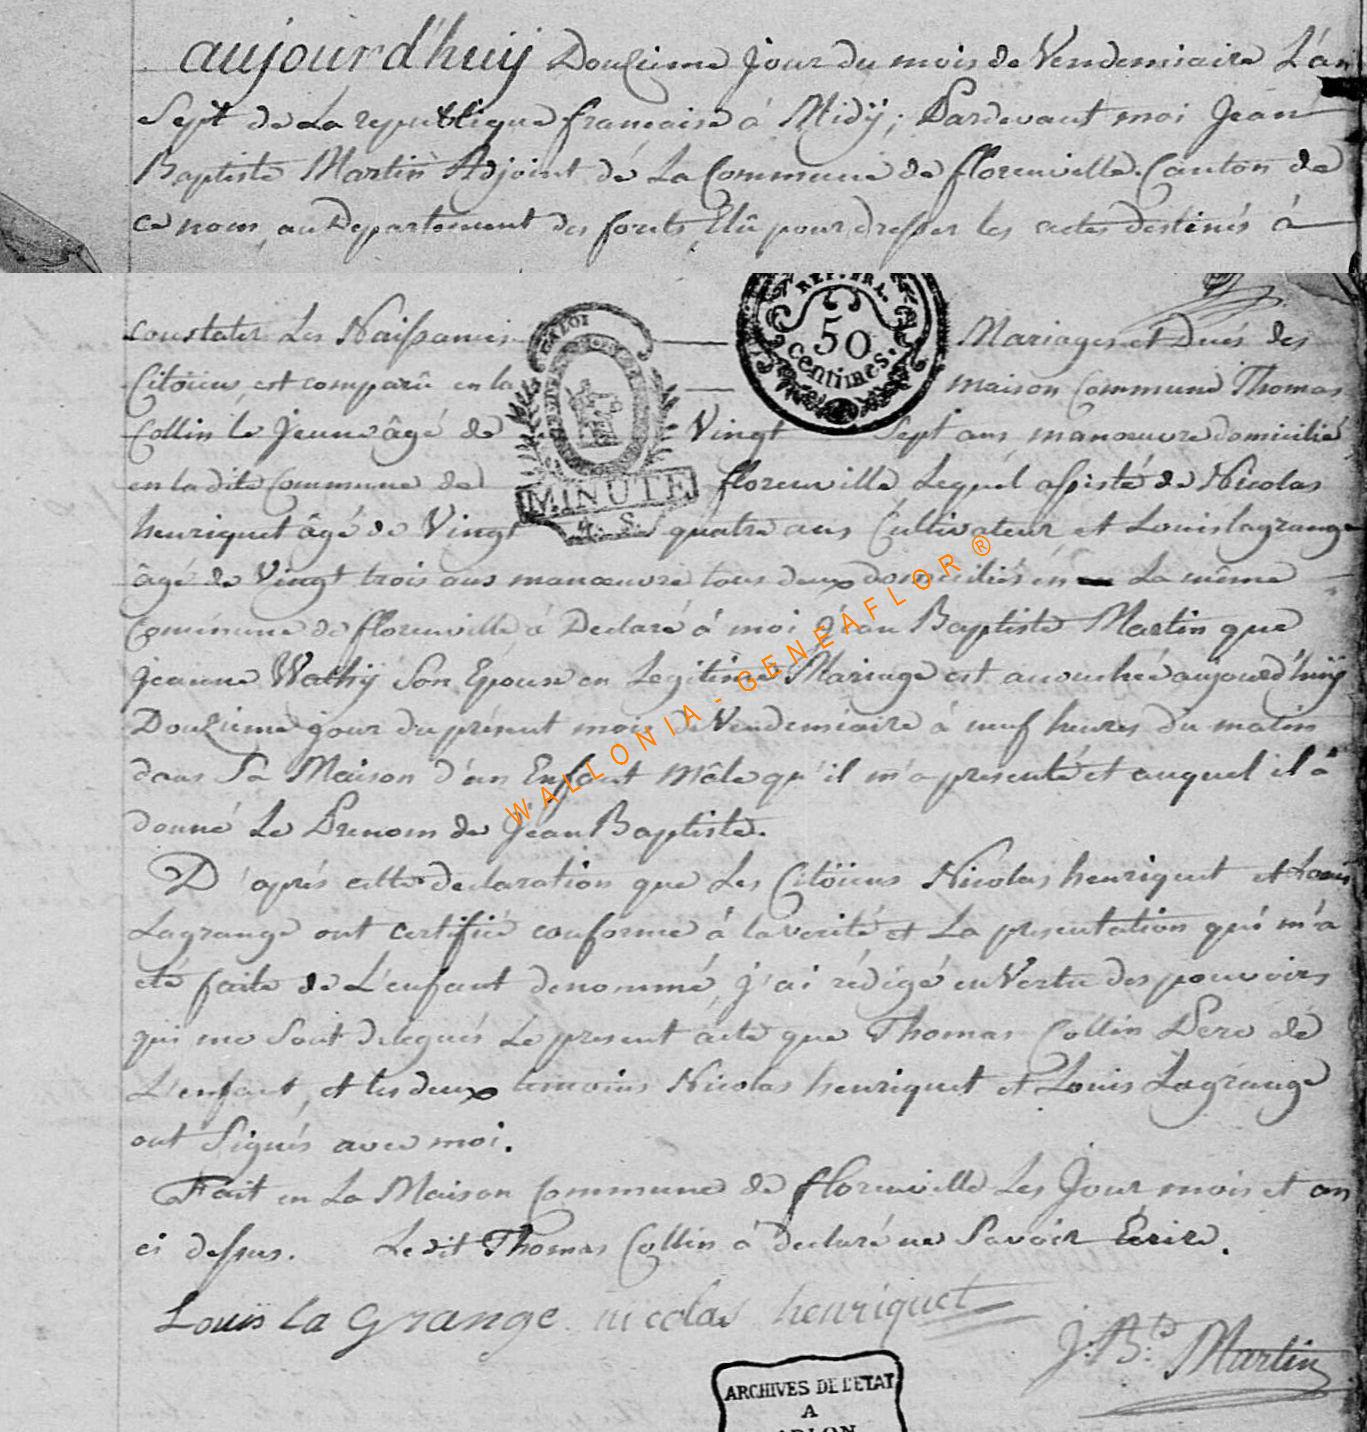 aujourd'huÿ Douzieme jour du mois de Vendemiaire L'an
Sept de La republique francaise à Midÿ; Pardevant moi Jean
Baptiste Martin Adjoint de La Commune de florenville. Canton de
ce nom, au Departement des forets, Elû pour dresser les actes destinés à
REP. FRA.
50
centimes.
constater Les Naissances Mariages et Decés des
Citoïens, est comparû en la maison Commune Thomas
Collin le Jeune âgé de Vingt Sept ans manœuvre domicilié
en la dite Commune de florenville Lequel assisté de Nicolas
MINUTE
henriquet âgé de Vingt quatre ans Cultivateur et Louis lagrange
âgé de Vingt trois ans manœuvre tous deux domiciliés en La même
Commune de florenville à Declaré à moi Jean Baptiste Martin que
Jeanne Wathÿ Son Epouse en Legitime Mariage est accouchée aujourd'huÿ
Douzieme jour du présent mois de Vendemiaire à neuf heures du matin
dans Sa Maison d'un Enfant Mâle qu'il m'a presenté et auquel il à
donné Le Prenom de Jean Baptiste.
D'aprés cette declaration que Les Citoïens Nicolas henriquet et Louis
Lagrange ont certifié conforme à la verité et La presentation qui m'a
eté faite de L'enfant denommé, j'ai rédigé en Vertu des pouvoirs
qui me Sont delegués Le present acte que Thomas Collin Pere de
L'enfant, et les deux temoins Nicolas henriquet et Louis Lagrange
ont Signés avec moi.
Fait en La Maison Commune de florenville Les Jour mois et an
ci dessus. Le dit Thomas Collin à declaré ne Savoir Ecrire.
Louis la Grange nicolas henriquet
J: B:te Martin
WALLONIA - GENEAFLOR ®
ARCHIVES DE L'ETAT
A
ARLON